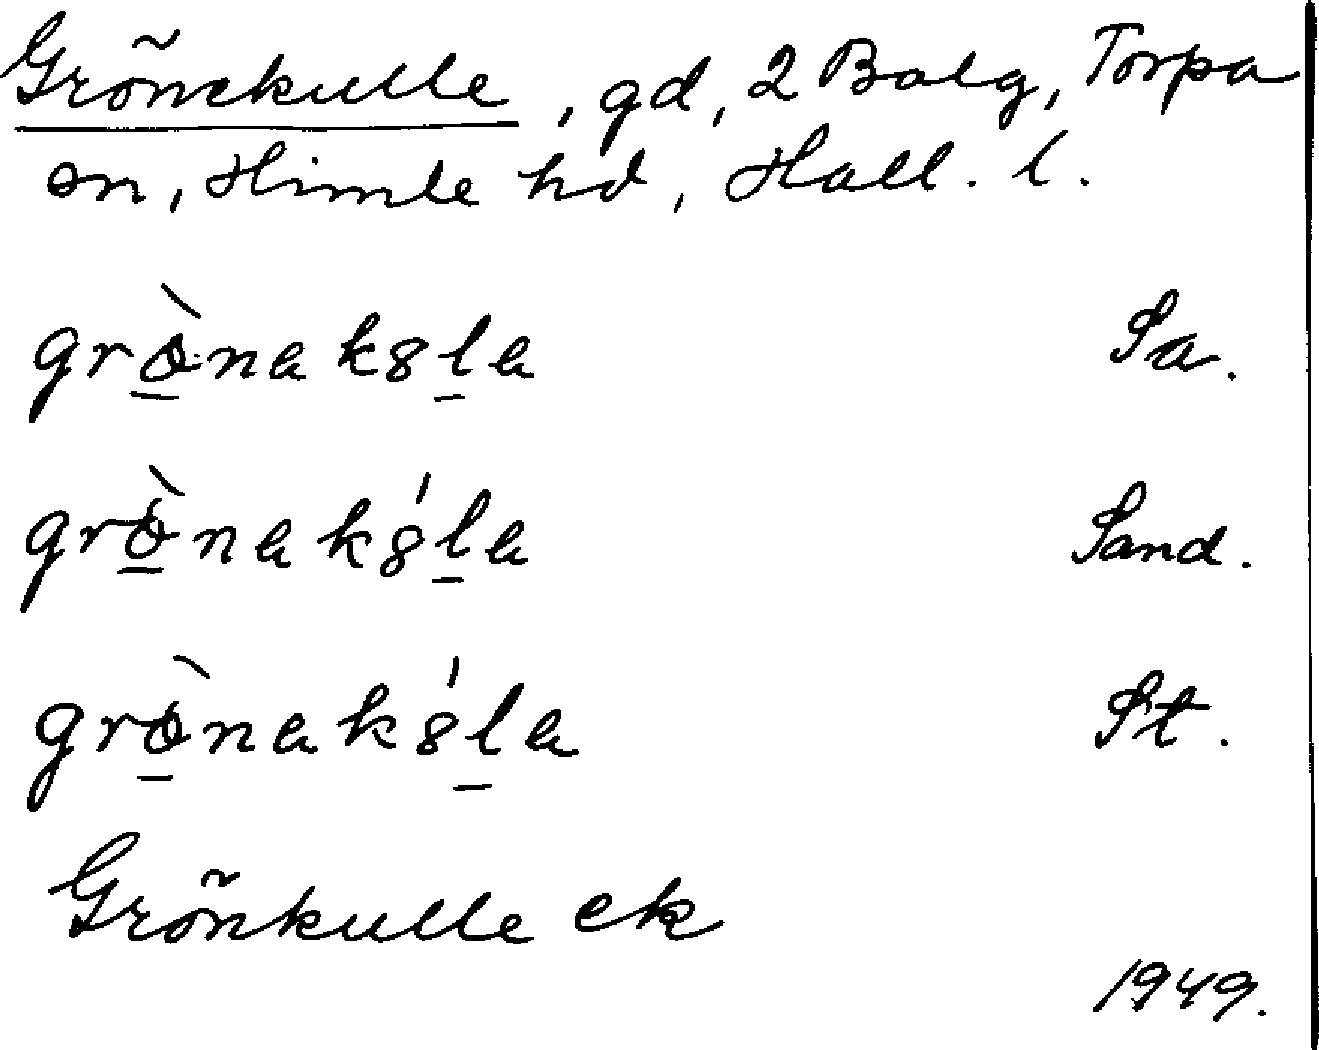 Grönekulle, gd, 2 Bolg, Torpa
sn, Himle hd, Hall. l.
grø̀nak8la Sa.
grø̀nak8́la Sand.
grø̀nak8́la St.
Grönkulle ek
1949.